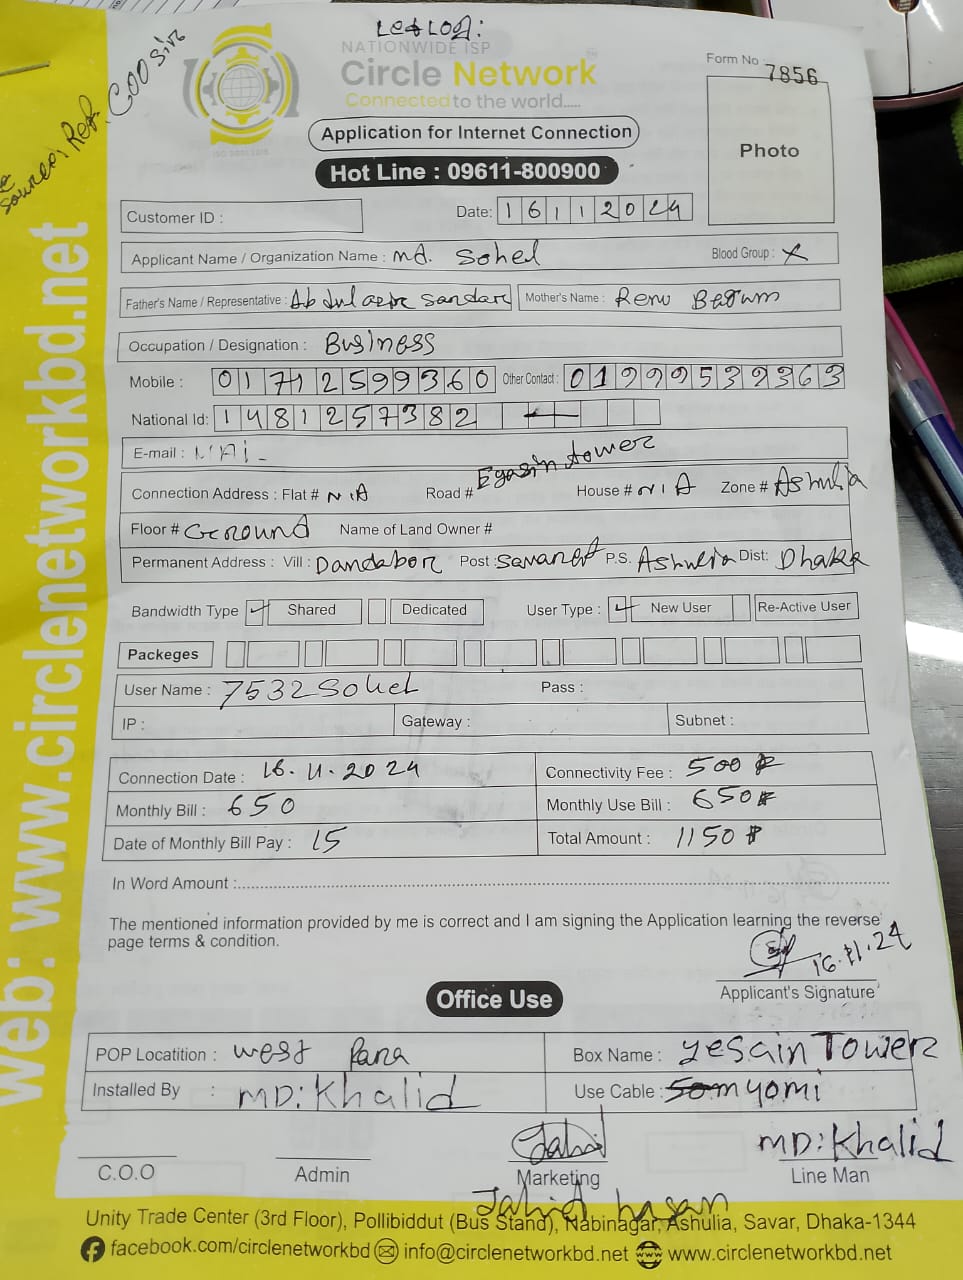 NATIONWIDE ISP
Circle Network
Connected to the world.....
Form No 7856
Application for Internet Connection
Photo
Hot Line : 09611-800900
Source: Ref. COO Sir
Customer ID :
Date: 16112024
Applicant Name / Organization Name : MD. Sohel
Blood Group : X
Father's Name / Representative : Abdul
Mother's Name : Renu Begum
Occupation / Designation : Business
Mobile : 01712599360 Other Contact : 01999539363
National Id: 1481257382
E-mail :
Connection Address : Flat # N/A Road # Eyasin tower House # N/A Zone # Ashulia
Floor # Ground Name of Land Owner #
Permanent Address : Vill : Dandabor Post : P.S. Ashulia Dist: Dhaka
Bandwidth Type ✓ Shared Dedicated User Type : ✓ New User Re-Active User
Packeges
User Name : 7532Sohel Pass :
IP : Gateway : Subnet :
Connection Date : 16.11.2024 Connectivity Fee : 500
Monthly Bill : 650 Monthly Use Bill : 650
Date of Monthly Bill Pay : 15 Total Amount : 1150
In Word Amount :
The mentioned information provided by me is correct and I am signing the Application learning the reverse
page terms & condition.
16.11.24
Applicant's Signature
Office Use
POP Locatition : West Para Box Name : Yesain Tower
Installed By : MD: Khalid Use Cable :
Jahid MD: Khalid
C.O.O Admin Marketing Line Man
Jahid hasan
Unity Trade Center (3rd Floor), Pollibiddut (Bus Stand), Nabinagar, Ashulia, Savar, Dhaka-1344
facebook.com/circlenetworkbd info@circlenetworkbd.net www.circlenetworkbd.net
web: www.circlenetworkbd.net